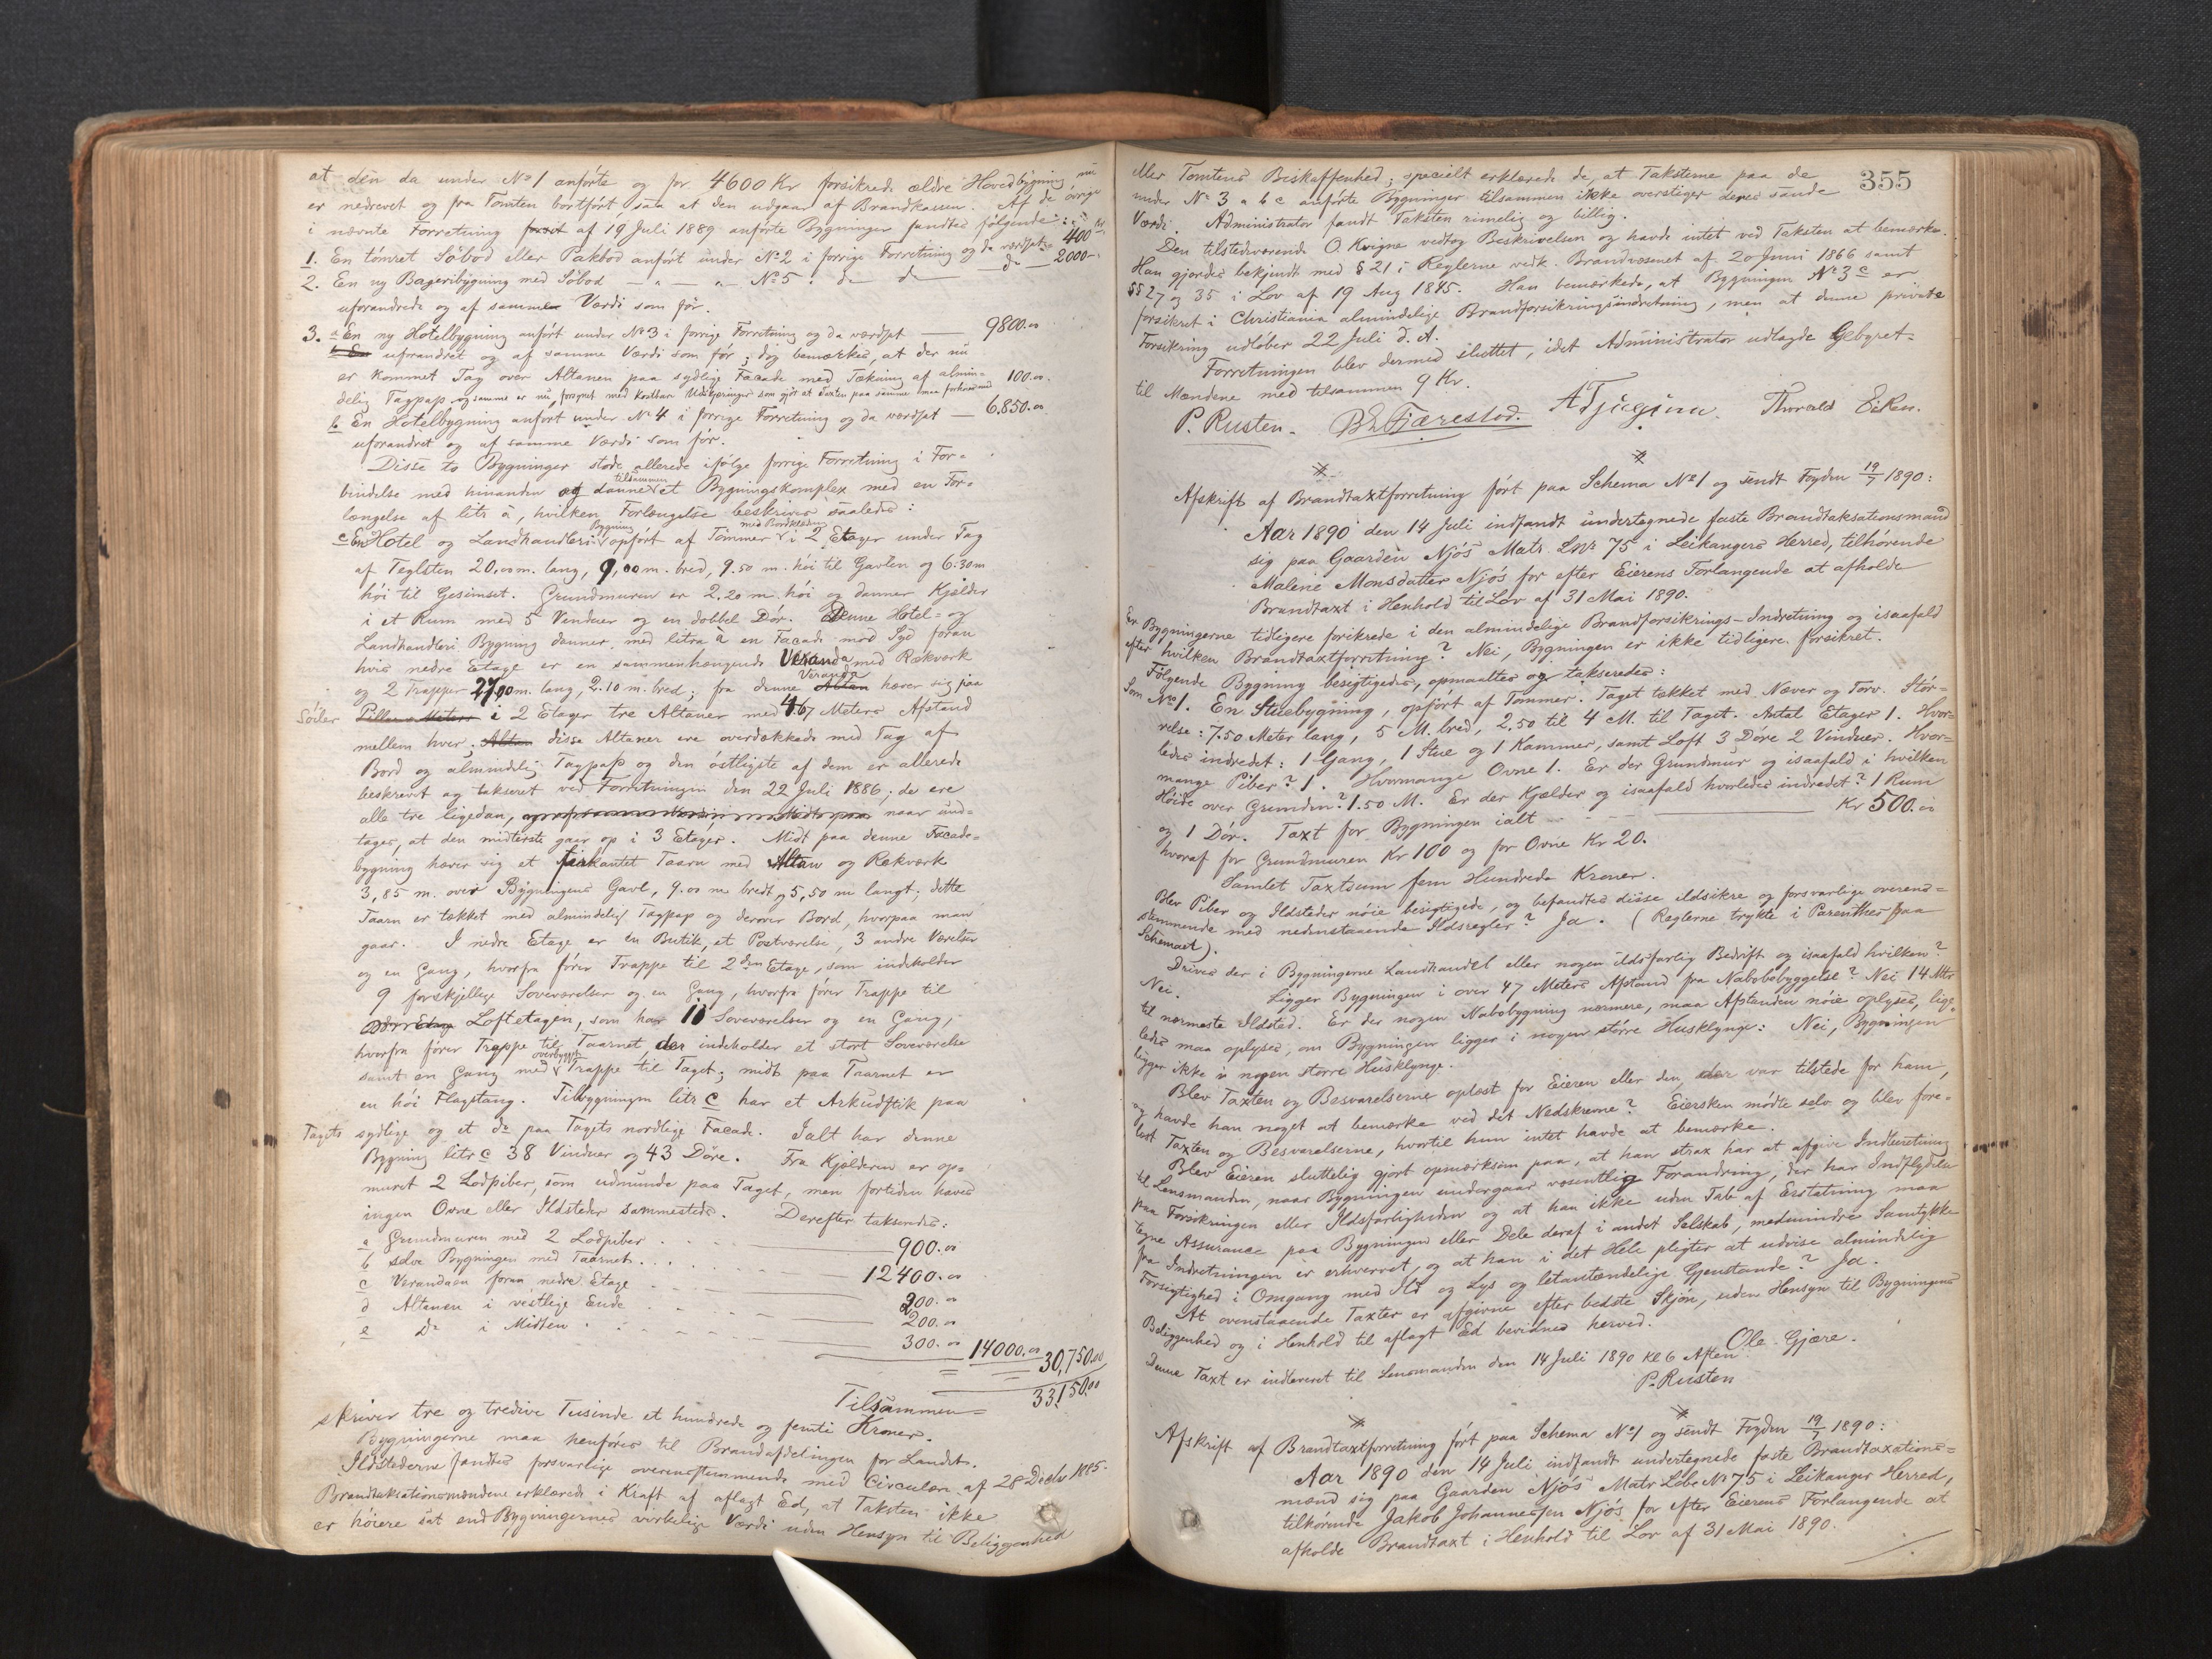 at den da under No 1 anførte og for 4600 Kr forsikrede ældre Hovedbygning nu
er nedrevet og fra Tomten bortført, saa at den udgaar af Brandkassen. Af de øvrige
i nævnte Forretning af 19 Juli 1889 anførte Bygninger fandtes følgende:
1. En tømret Søbod eller Pakbod anført under No 2 i forrige Forretning og da værdsat 400 Kr.
2. En ny Bageribygning med Søbod — " — " — No 5. do do do — 2000 -
uforandrede og af samme Værdi som før.
3. a En ny Hotelbygning anført under No 3 i forrige Forretning og da værdsat — 9800.00
uforandret og af samme Værdi som før; dog bemærkes, at der nu
er kommet Tag over Altanen paa sydlige Facade med Tækning af almin=
delig Tagpap og samme er nu forsynet med kostbar Udskjæringer som gjør at Taxten paa samme maa forhøies med 100.00.
b En Hotelbygning anført under No 4 i forrige Forretning og da værdsat — 6,850.00
uforandret og af samme Værdi som før.
Disse to Bygninger stode allerede ifølge forrige Forretning i For=
bindelse med hinanden og danner tilsammen et Bygningskomplex med en For=
længelse af litr a, hvilken Forlængelse beskrives saaledes:
c En Hotel og Landhandleri Bygning opført af Tømmer med Bordklædning i 2 Etager under Tag
af Teglsten 20.00 m. lang, 9,00 m. bred, 9.50 m. høi til Gavlen og 6.30 m
høi til Gesimset. Grundmuren er 2.20 m. høi og danner Kjælder
i et Rum med 5 Vinduer og en dobbel Dør. Denne Hotel= og
Landhandleri Bygning danner med litra a en Facade mod Syd foran
hvis nedre Etage er en sammenhængende Veranda med Rækværk
og 2 Trapper 27,00 m. lang, 2.10 m. bred; fra denne Veranda hæver sig paa
Søiler i 2 Etager tre Altaner med 4.67 Meters Afstand
mellem hver; disse Altaner ere overdækkede med Tag af
Bord og almindelig Tagpap og den østligste af dem er allerede
beskrevet og takseret ved Forretningen den 22 Juli 1886; de ere
alle tre ligedan, naar und=
tages, at den midterste gaar op i 3 Etager. Midt paa denne Facade=
bygning hæver sig et firkantet Taarn med Altan og Rækværk
3,85 m. over Bygningens Gavl, 9.00 m bredt og 5,50 m langt; dette
Taarn er tækket med almindelig Tagpap og derover Bord, hvorpaa man
gaar. I nedre Etage er en Butik, et Postværelse, 3 andre Værelser
og en Gang, hvorfra fører Trappe til 2den Etage, som indeholder
9 forskjellige Soveværelser og en Gang, hvorfra fører Trappe til
Loftetagen, som har 10 Soveværelser og en Gang,
hvorfra fører Trappe til Taarnet der indeholder et stort Soveværelse
samt en Gang med overbygget Trappe til Taget; midt paa Taarnet er
en høi Flagstang. Tilbygningen litr c har et Arkudstik paa
Tagets sydlige og et do paa Tagets nordlige Facade. Ialt har denne
Bygning litr c 38 Vinduer og 43 Døre. Fra Kjælderen er op=
muret 2 Lodpiber, som udmunde paa Taget, men fortiden haves
ingen Ovne eller Ildsteder sammesteds. Derefter taksredes:
a Grundmuren med 2 Lodpiber — 900.00
b selve Bygningen med Taarnet — 12400.00
c Verandaen foran nedre Etage — 200.00
d Altanen i vestlige Ende — 200.00
e Do i Midten — 300.00 14000.00 30,750.00
Tilsammen = 33150.00
skriver tre og tredive Tusinde et hundrede og femti Kroner.
Bygningerne maa henføres til Brandafdelingen for Landet.
Ildstederne fandtes forsvarlige overensstemmende med Circulære af 28 Decbr 1885.
Brandtaksationsmændene erklærede i Kraft af aflagt Ed, at Taksten ikke
er høiere sat end Bygningernes virkelige Værdi uden Hensyn til Beliggenhed
355
eller Tomtens Beskaffenhed; specielt erklærede de, at Taksterne paa de
under No 3 a b c anførte Bygninger tilsammen ikke overstiger deres sande
Værdi. Administrator fandt Taksten rimelig og billig.
Den tilstedeværende O. Kvigne vedtog Beskrivelsen og havde intet ved Taksten at bemærke.
Han gjordes bekjendt med § 21 i Reglerne vedk. Brandvæsenet af 20 Juni 1866 samt
§§ 27 og 35 i Lov af 19 Aug 1845. Han bemærkede, at Bygningen No 3 c er
forsikret i Christiania almindelige Brandforsikringsindretning, men at denne private
Forsikring udløber 22 Juli d. A.
Forretningen blev dermed sluttet, idet Administrator udlagde Gebyret
til Mændene med tilsammen 9 Kr.
P. Rusten. Thorald Eiken.
Afskrift af Brandtaxtforretning ført paa Schema No 1 og sendt Fogden 19/7 1890:
Aar 1890 den 14 Juli indfandt undertegnede faste Brandtaksationsmænd
sig paa Gaarden Njøs Matr. Lnr 75 i Leikangers Herred, tilhørende
Malene Monsdatter Njøs for efter Eierens Forlangende at afholde
Brandtaxt i Henhold til Lov af 31 Mai 1890.
Er Bygningerne tidligere forsikrede i den almindelige Brandforsikrings-Indretning og isaafald
efter hvilken Brandtaxtforretning? Nei, Bygningen er ikke tidligere forsikret.
Følgende Bygning besigtigedes, opmaaltes og takseredes:
Som No 1. En Stuebygning, opført af Tømmer. Taget tækket med Næver og Torv. Stør=
relse: 7.50 Meter lang, 5 M. bred, 2,50 til 4 M. til Taget. Antal Etager 1. Hvor=
ledes indredet: 1 Gang, 1 Stue og 1 Kammer, samt Loft 3 Døre 2 Vinduer. Hvor=
mange Piber? 1. Hvormange Ovne 1. Er der Grundmur og isaafald i hvilken
Høide over Grunden? 1.50 M. Er der Kjælder og isaafald hvorledes indredet? 1 Rum
og 1 Dør. Taxt for Bygningen ialt — Kr 500.00
hvoraf for Grundmuren Kr 100 og for Ovne Kr 20.
Samlet Taxtsum fem Hundrede Kroner.
Blev Piber og Ildsteder nøie besigtigede, og befandtes disse ildsikre og forsvarlige overens=
stemmende med nedenstaaende Ildsregler? Ja. (Reglerne trykte i Parenthes paa
Schemaet).
Drives der i Bygningerne Landhandel eller nogen ildsfarlig Bedrift og isaafald hvilken?
Nei. Ligger Bygningen i over 47 Meters Afstand fra Nabobebyggelse? Nei 14 Mtr
til nærmeste Ildsted. Er der nogen Nabobygning nærmere, maa Afstanden nøie oplyses, lige=
ledes maa oplyses, om Bygningen ligger i nogen større Husklynge: Nei, Bygningen
ligger ikke i nogen større Husklynge.
Blev Taxten og Besvarelserne oplæst for Eieren eller den, der var tilstede for ham,
og havde han noget at bemærke ved det Nedskrevne? Eiersken mødte selv og blev fore=
læst Taxten og Besvarelserne, hvortil hun intet havde at bemærke.
Blev Eieren sluttelig gjort opmærksom paa, at han strax har at afgive Indberetning
til Lensmanden, naar Bygningen undergaar væsentlig Forandring, der har Indflydelse
paa Forsikringen eller Ildsfarligheden og at han ikke uden Tab af Erstatning maa
tegne Assurance paa Bygningen eller Dele deraf i andet Selskab, medmindre Samtykke
fra Indretningen er erhvervet, og at han i det Hele pligter at udvise almindelig
Forsigtighed i Omgang med Ild og Lys og letantændelige Gjenstande? Ja.
At ovenstaaende Taxter er afgivne efter bedste Skjøn, uden Hensyn til Bygningens
Beliggenhed og i Henhold til aflagt Ed bevidnes herved.
Ole Gjære.
Denne Taxt er indleveret til Lensmanden den 14 Juli 1890 Kl 6 Aften
P. Rusten
Afskrift af Brandtaxtforretning ført paa Schema No 1 og sendt Fogden 19/7 1890:
Aar 1890 den 14 Juli indfandt undertegnede faste Brandtaxations=
mænd sig paa Gaarden Njøs Matr. Løbe No 75 i Leikanger Herred,
tilhørende Jakob Johannessen Njøs for efter Eierens Forlangende at
afholde Brandtaxt i Henhold til Lov af 31 Mai 1890.